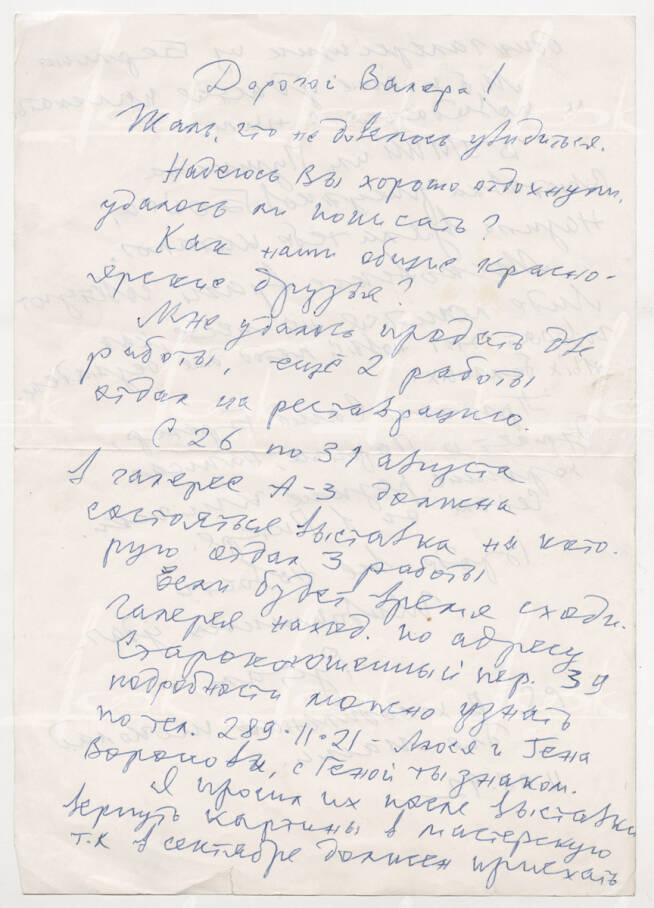 Дорогой Валера!
Жаль, что не довелось увидиться.
Надеюсь Вы хорошо отдохнули,
удалось ли пописать?
Как наши общие красно-
ярские друзья?
Мне удалось продать две
работы, ещё 2 работы
отдал на реставрацию.
С 26 по 31 августа
в галерее А-3 должна
состояться выставка на кото-
рую отдал 3 работы
Если будет время сходи.
Галерея наход. по адресу
Староконюшенный пер. 39
подробности можно узнать
по тел. 289-11-21 - Люся и Гена
с Геной ты знаком.
Я просил их после выставки
вернуть картины в мастерскую
т.к в сентябре должен приехать